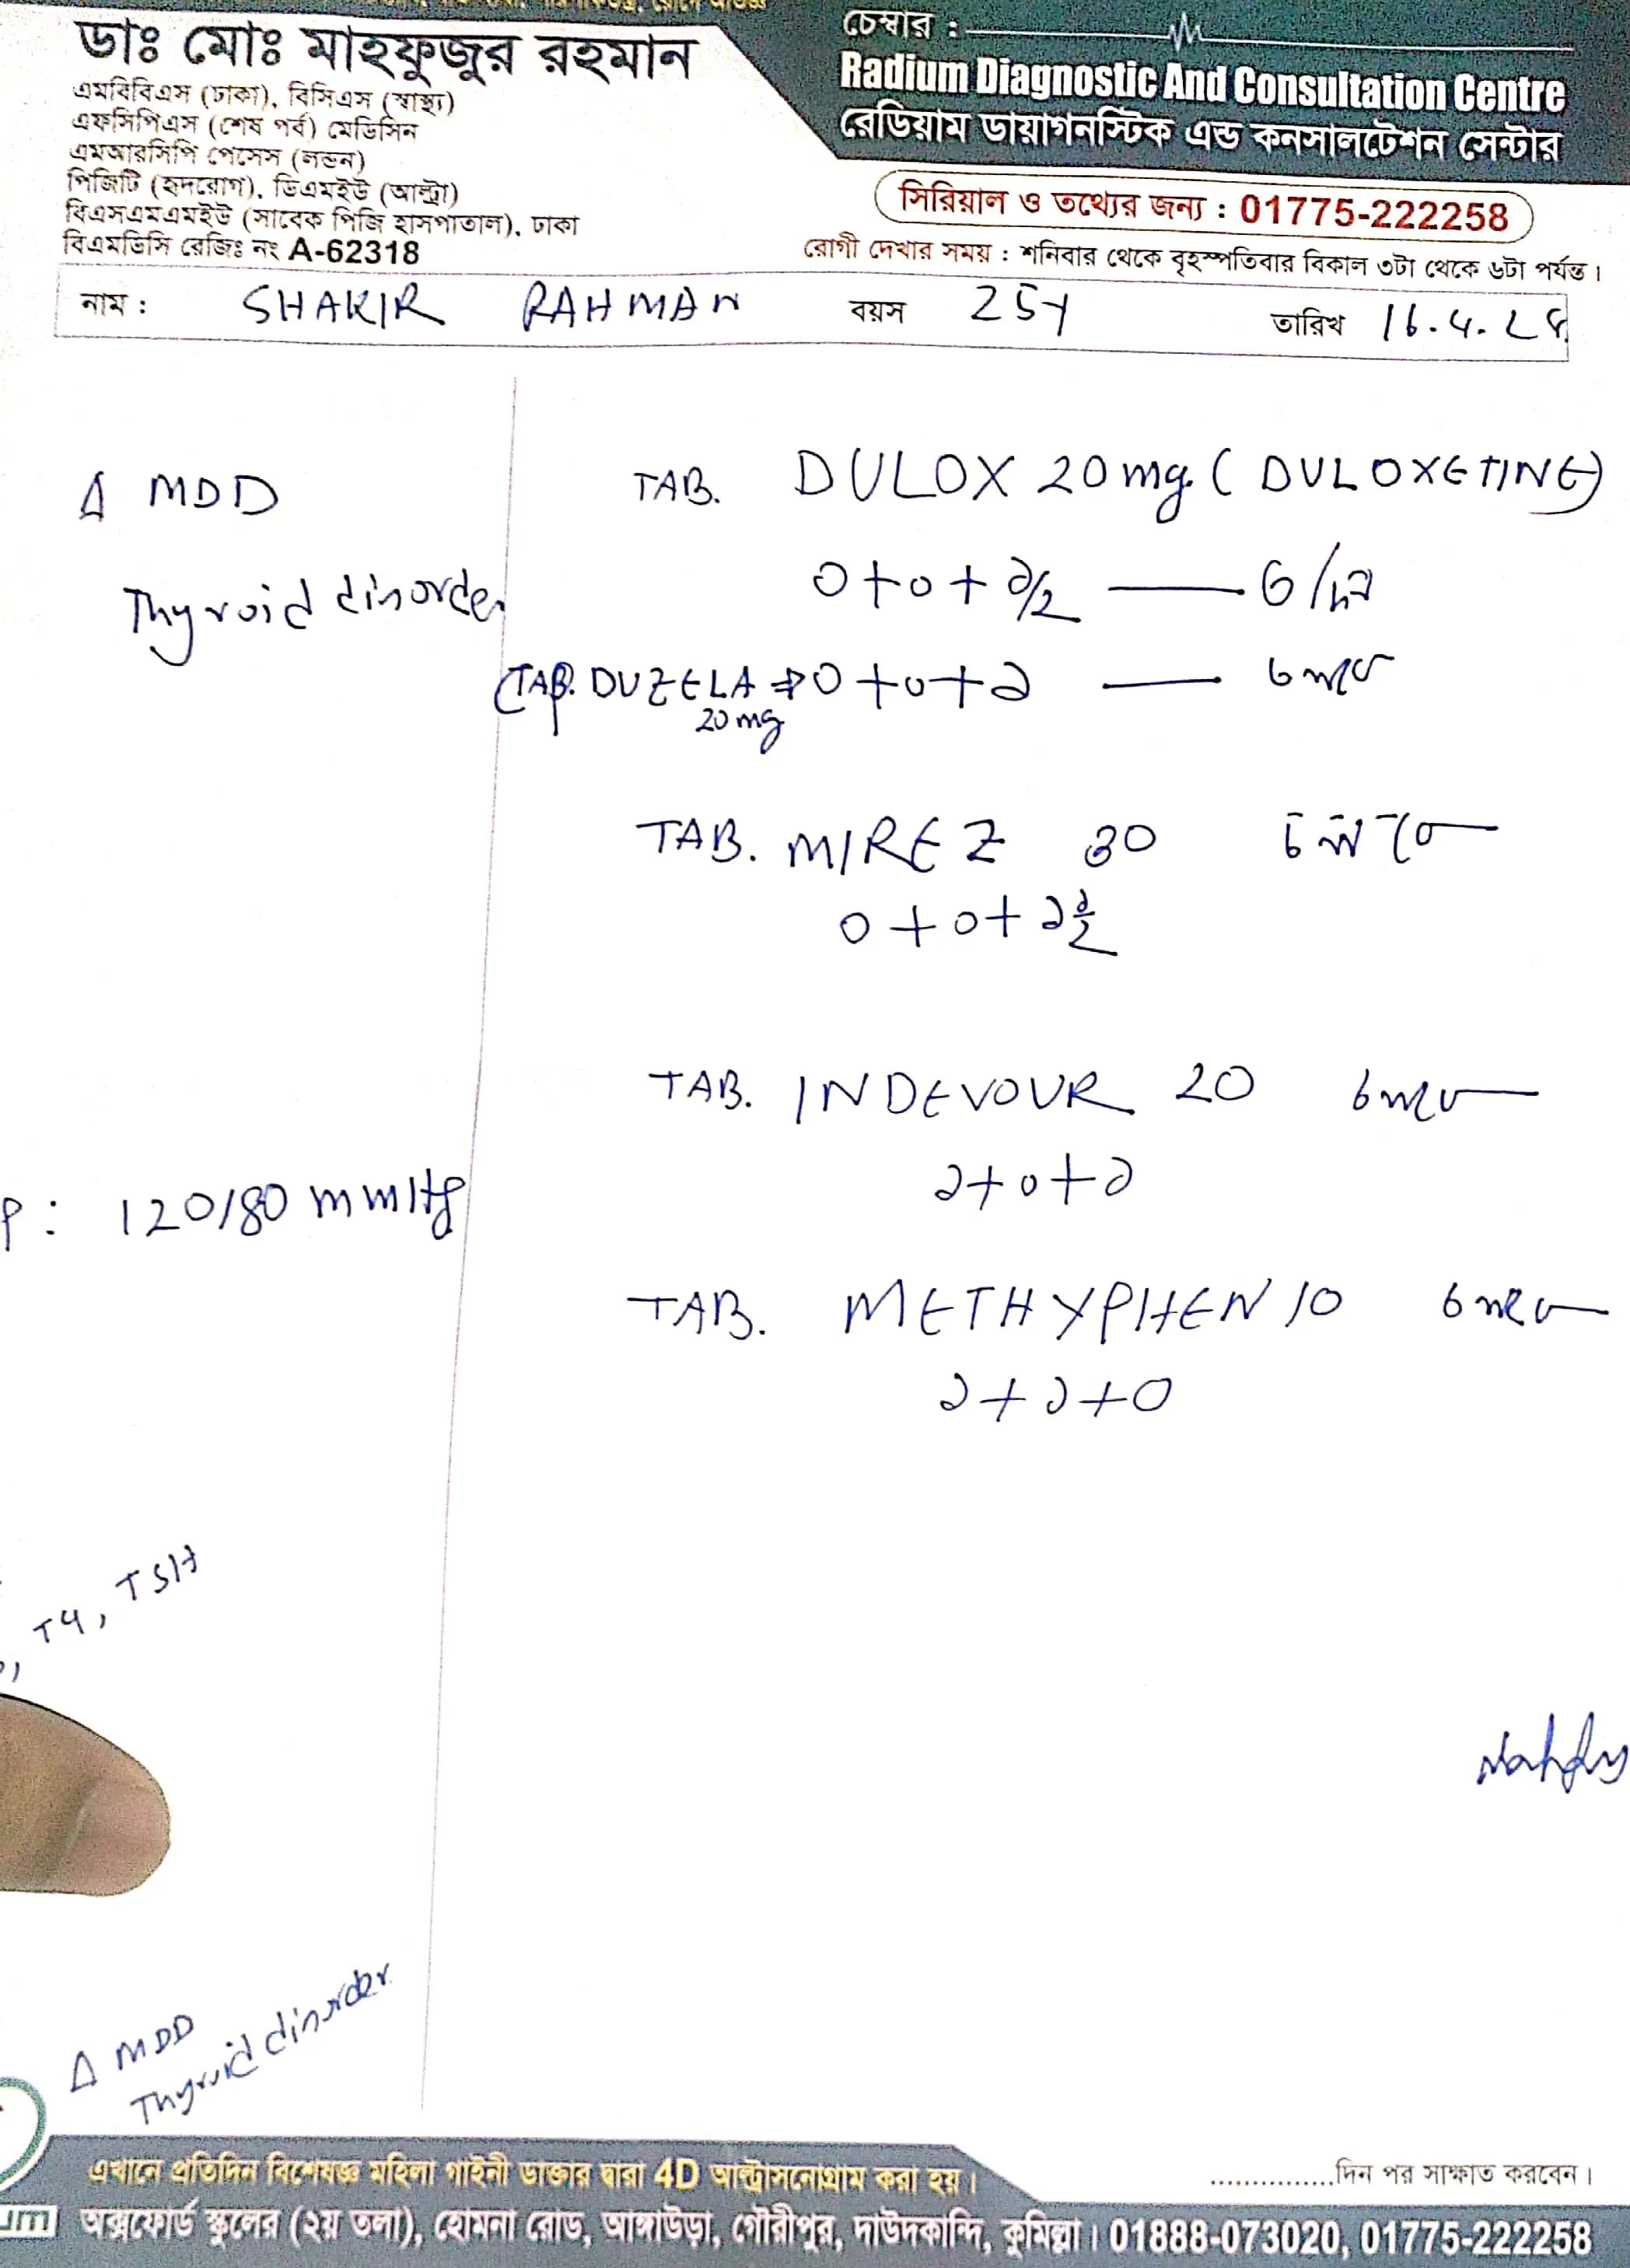 ডাঃ মোঃ মাহফুজুর রহমান
এমবিবিএস (ঢাকা), বিসিএস (স্বাস্থ্য)
এফসিপিএস (শেষ পর্ব) মেডিসিন
এমআরসিপি পেসেস (লন্ডন)
পিজিটি (হৃদরোগ), ডিএমইউ (আল্ট্রা)
বিএসএমএমইউ (সাবেক পিজি হাসপাতাল), ঢাকা
বিএমডিসি রেজিঃ নং A-62318
চেম্বার :
Radium Diagnostic And Consultation Centre
রেডিয়াম ডায়াগনস্টিক এন্ড কনসালটেশন সেন্টার
সিরিয়াল ও তথ্যের জন্য : 01775-222258
রোগী দেখার সময় : শনিবার থেকে বৃহস্পতিবার বিকাল ৩টা থেকে ৬টা পর্যন্ত।
নাম : SHAKIR RAHMAN বয়স 25y তারিখ 16.4.
Δ MDD
Thyroid disorder
P: 120/80 mmHg
T4, TSH
Δ MDD
Thyroid disorder
TAB. DULOX 20mg. (DULOXETINE)
0+0+১/2
(TAB. DUZELA 0+0+১ — ৬ মাস
20mg
TAB. MIREZ 30
0+0+১ ১/2
TAB. INDEVOUR 20 ৬ মাস
১+0+১
TAB. METHYPHEN 10 ৬ মাস
১+১+0
এখানে প্রতিদিন বিশেষজ্ঞ মহিলা গাইনী ডাক্তার দ্বারা 4D আল্ট্রাসনোগ্রাম করা হয়।
...............দিন পর সাক্ষাত করবেন।
um অক্সফোর্ড স্কুলের (২য় তলা), হোমনা রোড, আঙ্গাউড়া, গৌরীপুর, দাউদকান্দি, কুমিল্লা। 01888-073020, 01775-222258